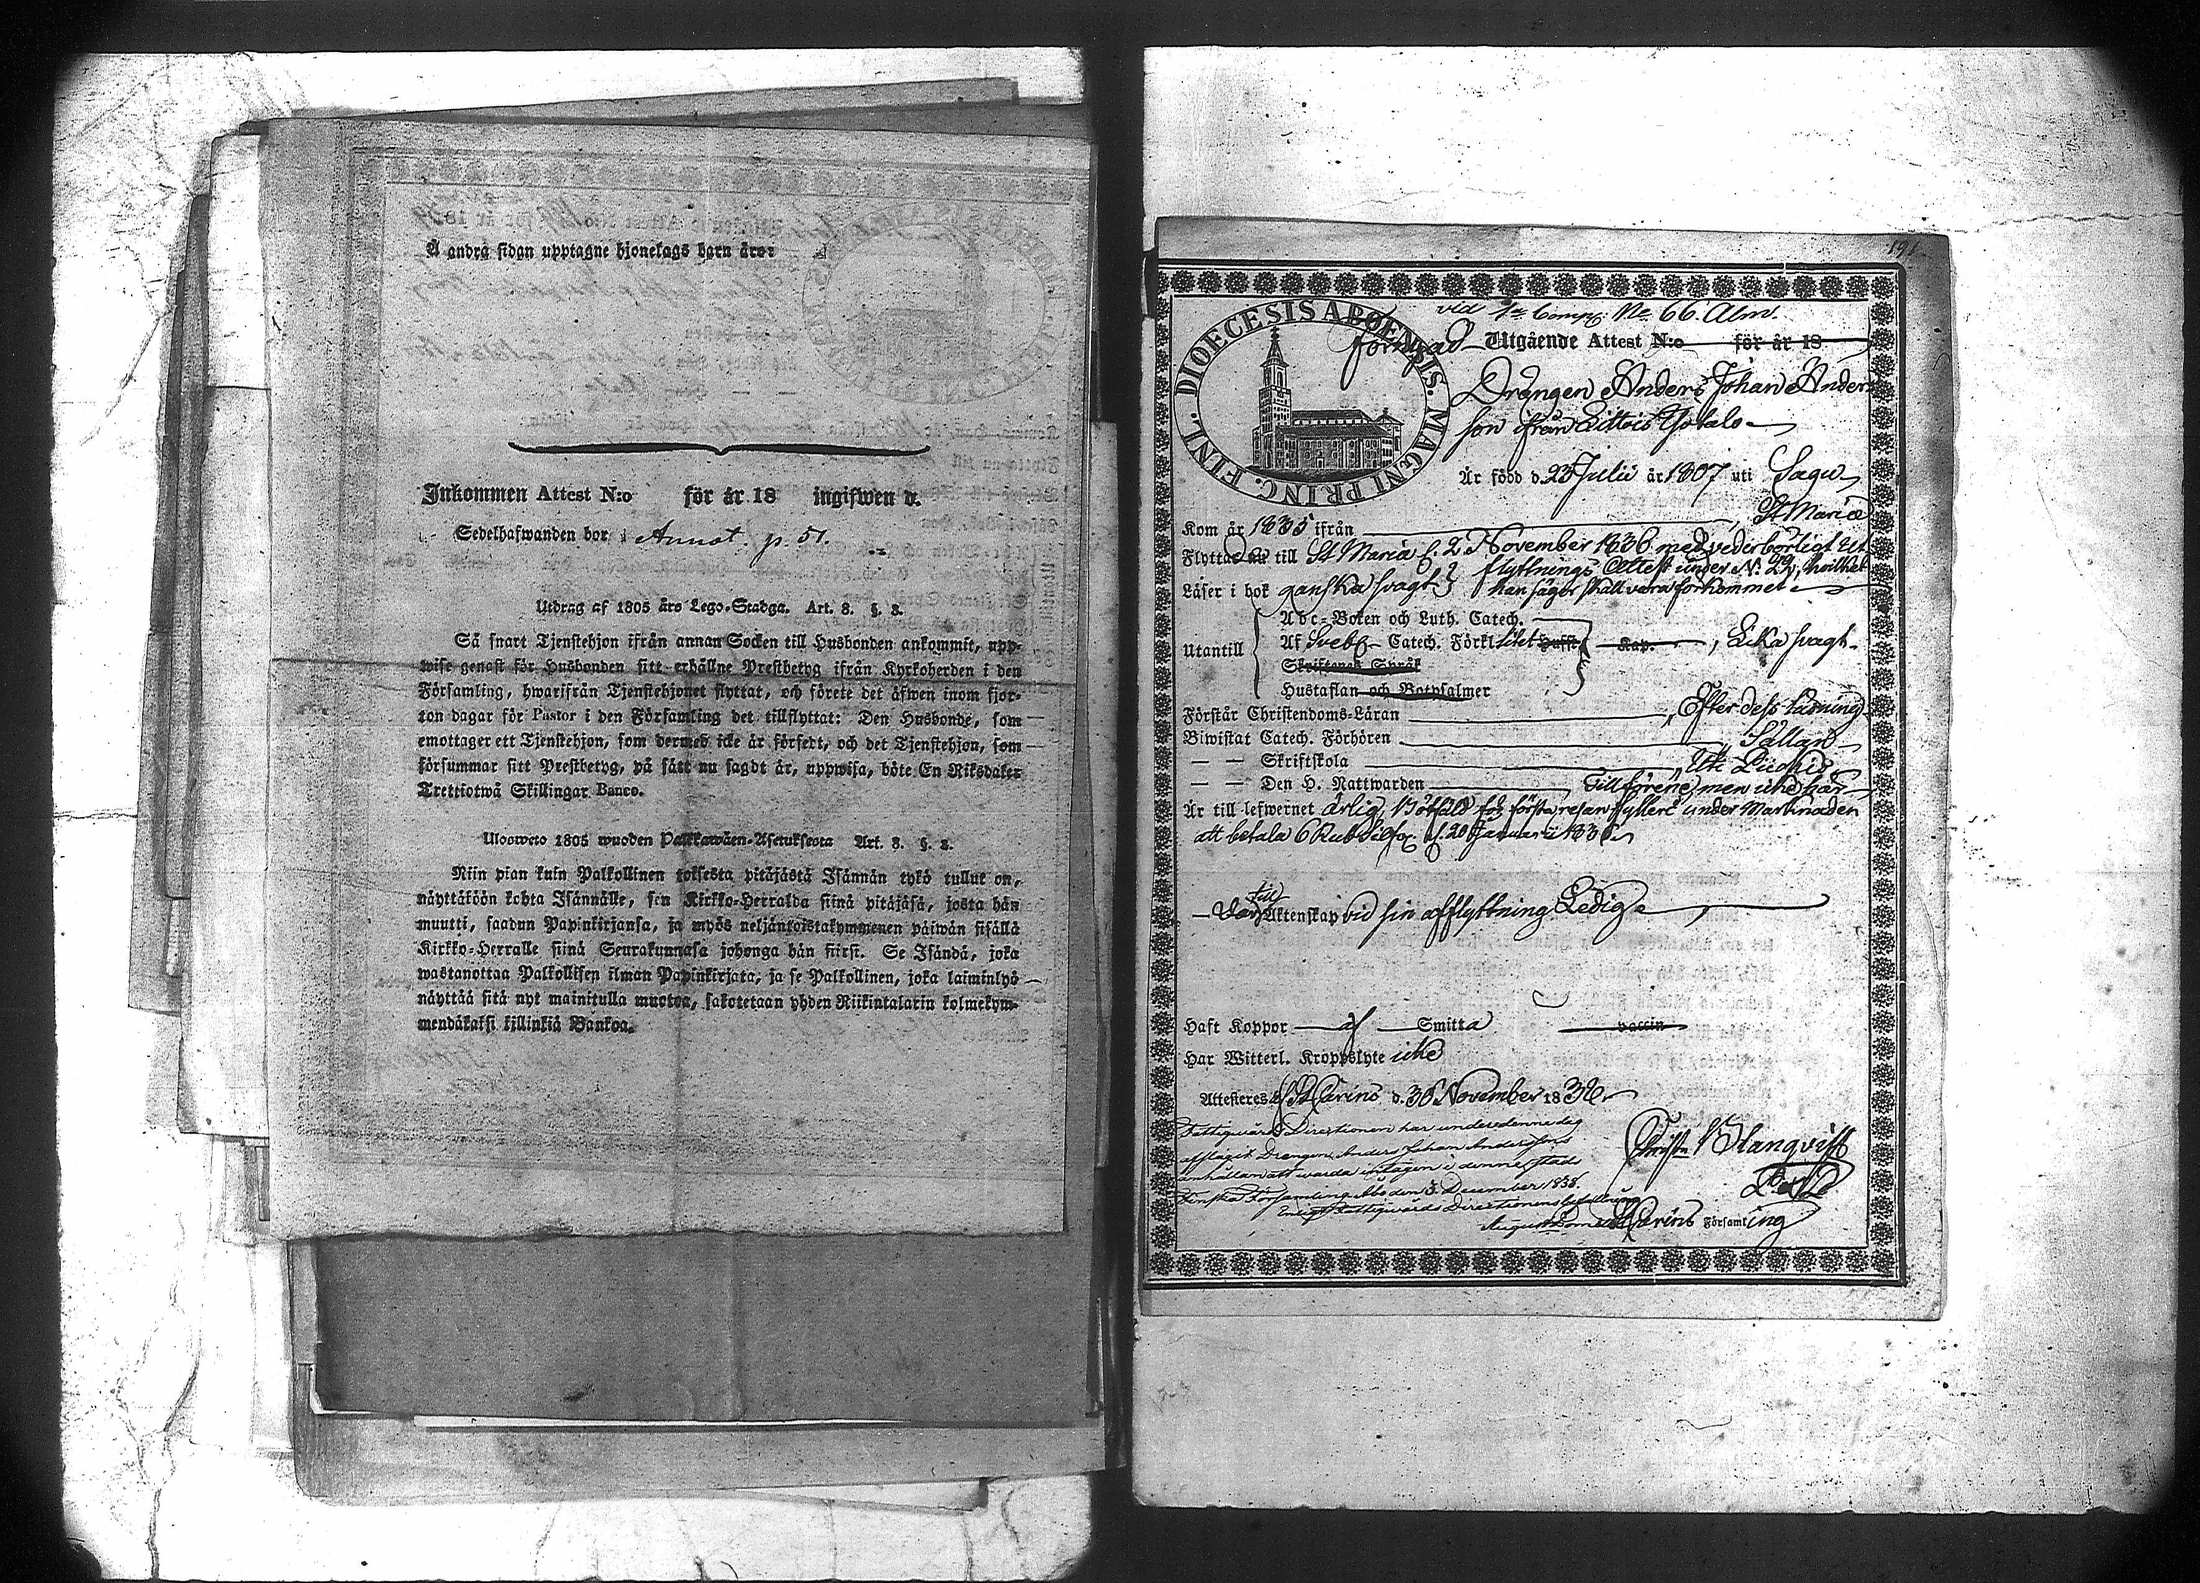 Å andra sidan upptagne hjonelags barn äro:
Inkommen Attest N:o för år 18 ingifwen d.
Sedelhafwanden bor i Annot p. 51.
Utdrag af 1805 års Lego-Stadga. Art. 8. §. 2.
Så snart Tjenstehjon ifrån annan Socken till Husbonden ankommit, upp-
wise genast för Husbonden sitt erhållne Prestbetyg ifrån Kyrkoherden i den
Församling, hwarifrån Tjenstehjonet flyttat, och förete det äfwen inom fjor-
ton dagar för Pastor i den Församling det tillflyttat: Den Husbonde, som
emottager ett Tjenstehjon, som dermed icke är försedt, och det Tjenstehjon, som
försummar sitt Prestbetyg, på sätt nu sagdt är, uppwisa, böte En Riksdaler
Trettiotwå Skillingar Banco.
Ulosweto 1805 wuoden Palkkawäen-Asetuksesta Art. 8. §. 2.
Niin pian kuin Palkollinen toksesta pitäjästä Isännän tykö tullut on,
näyttäköön kohta Isännälle, sen Kirkko-Herralda siinä pitäjäsä, josta hän
muutti, saadun Papinkirjansa, ja myös neljäntoistakymmenen päiwän sisällä
Kirkko-Herralle siinä Seurakunnasa johonga hän siirsi. Se Isändä, joka
wastanottaa Palkollisen ilman Papinkirjata, ja se Palkollinen, joka laiminlyö
näyttää sitä nyt mainitulla muotoa, sakotetaan yhden Riikintalarin kolmekym-
mendäkaksi killinkiä Bankoa.
191.
vid 1a Comp. No 66. Abm.
DIOECESIS ABOENSIS. MAGNI PRINC. FINL.
Förnyad Utgående Attest N:o för år 18
Drängen Anders Johan Anders
son ifrån Littois Gotalo
Är född d. 23 Julii år 1807 uti Sagu
Kom år 1835 ifrån St Mariæ
Flyttade nu till St Mariæ d. 2 November 1836 med vederbörligt
flyttnings Attest under N. 29, hvilket
Läser i bok ganska svagt han säger skall vara förkommet
Abc-Boken och Luth. Catech.
Utantill Af Sveb. Catech. Förkl. litet Hussb. Kap. , Lika svagt.
Skriftenes Språk
Hustaflan och Botpsalmer
Förstår Christendoms-Läran Efter dess läsning
Biwistat Catech. Förhören Sällan
— — Skriftskola
— — Den H. Nattwarden Tillförene, men icke här
Är till lefwernet ärlig, Bötfäld för första resan fylleri under Marknaden
att betala 6 Rub. Silf. d. 20 Januarii 1836.
till Äktenskap vid sin afflyttning Ledig
Haft Koppor af Smitta vaccin
Har Witterl. Kroppslyte icke
Attesteres af St Carins d. 30 November 1838.
Fattigvårds Directionen har undere denne dag
afslagit Drängen Anders Johan Anderssons
anhållan att warda intagen i denne stads
Finska Församling Åbo den 3. December 1838.
Enligt Fattigvårds Directionens befallning
Christ. Blanqvist
St Carins Församling